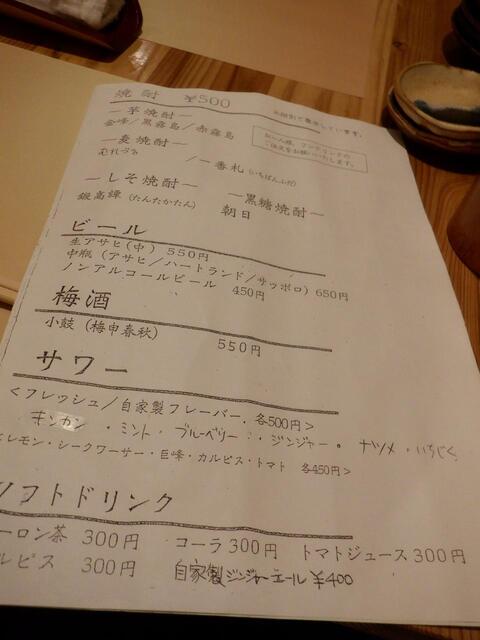 焼酎 ¥500
※税別で表示しています。
お一人様、ワンドリンクの
ご注文をお願いいたします。
－芋焼酎－
金峰／黒霧島／赤霧島
－麦焼酎－
／一番札(いちばんふだ)
－しそ焼酎－
鍛高譚(たんたかたん)
－黒糖焼酎－
朝日
ビール
生アサヒ(中) 550円
中瓶(アサヒ／ハートランド／サッポロ) 650円
ノンアルコールビール 450円
梅酒
小鼓(梅申春秋) 550円
サワー
＜フレッシュ／自家製フレーバー．各500円＞
キンカン ・ミント・ ブルーベリー ・ジンジャー ・ ナツメ ・いちじく
＜レモン・シークワーサー・巨峰・カルピス・トマト 各450円＞
ソフトドリンク
ーロン茶 300円 コーラ 300円 トマトジュース 300円
ルピス 300円 自家製ジンジャーエール ¥400